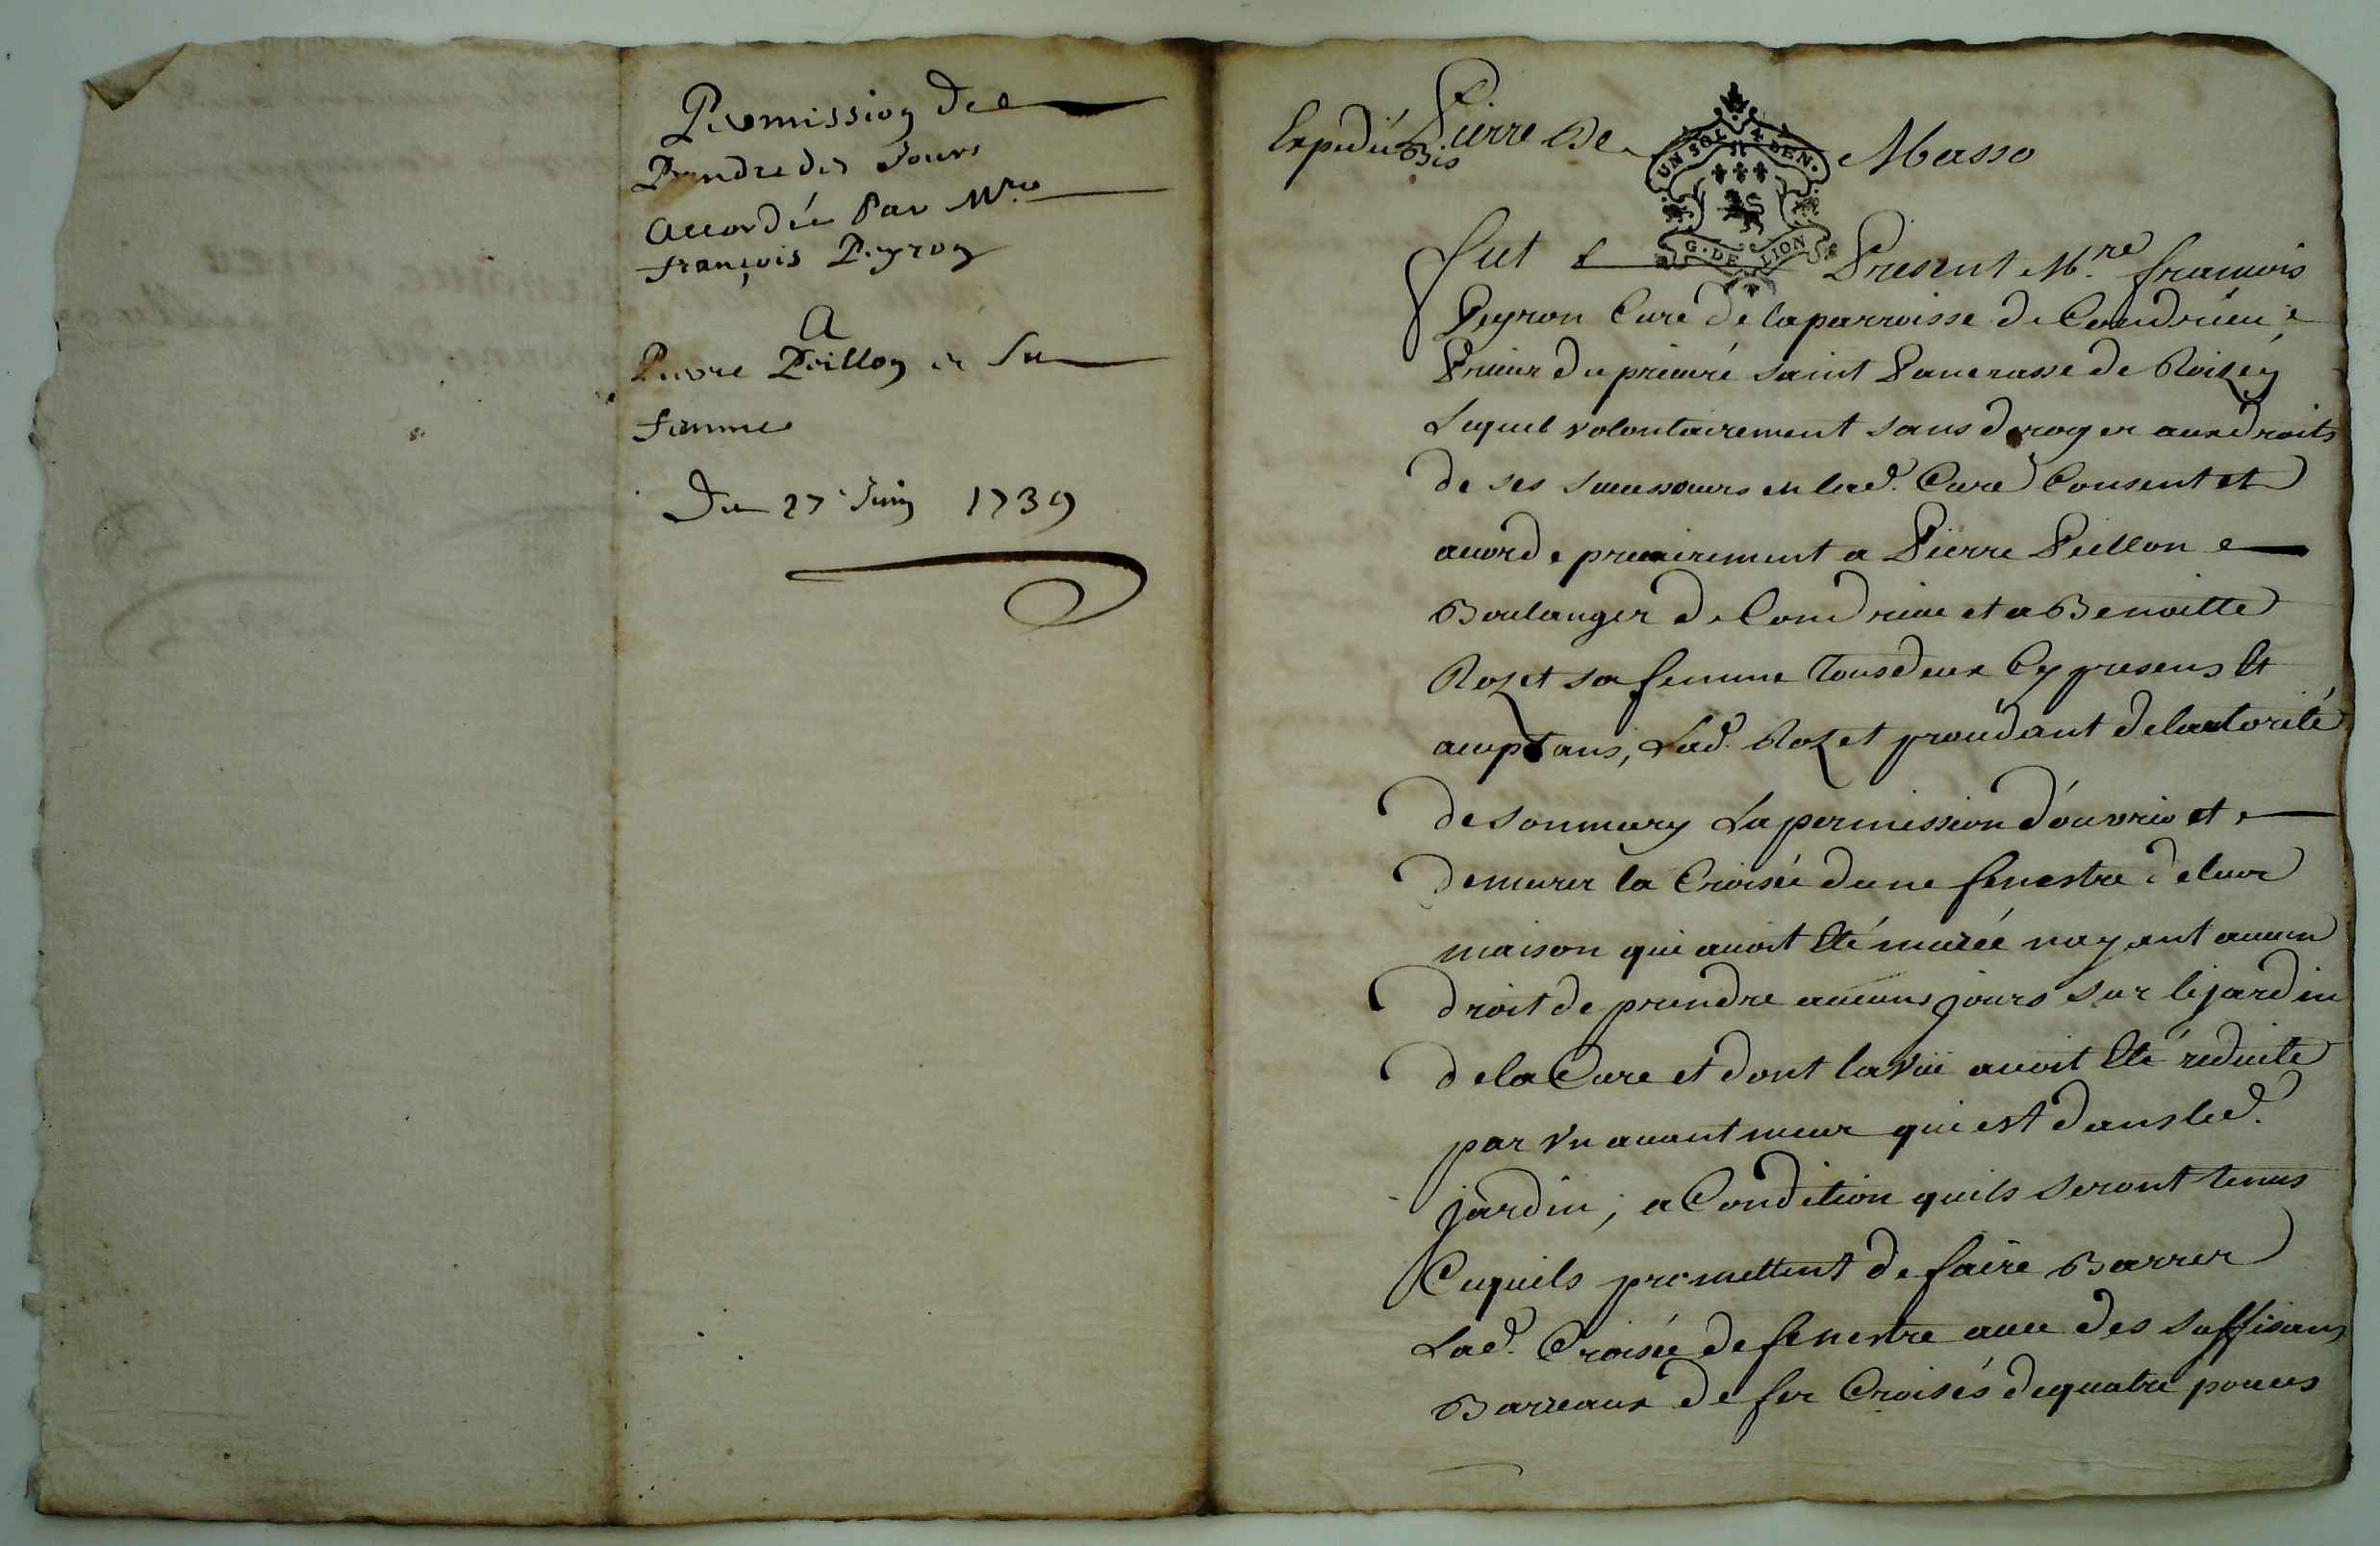 Permission de
Prendre des Jours
accordée Par Mre
françois Peyron
A
Pierre Peillon et Sa
femme
Du 27 Juin 1739
Expedié Bis
Pierre De Masso
UN SOL 4 DEN.
G. DE LION
fut Present Mre francois
Peyron Curé de la parroisse de Condrieu
Prieur du prieuré saint Pancrasse de Roizéy
Lequel volontairement sans deroger aux droits
de ses successeurs en lad. Cure Consent et
accorde precairement a Pierre Peillon
Boulanger de Condrieu et a Benoitte
Rozet sa femme Tous deux Cy presens Et
acceptans, Lad. Rozet procédant de lautorité
de son mary La permission d'ouvrir et
demurer la Croisée dune fenestre de leur
maison qui avoit Eté murée nayant aucun
droit de prendre aucuns jours sur le jardin
de la Cure et dont la Vüe avoit Eté reduite
par vn auant meur qui est dans led.
jardin; a Condition quils seront tenus
Cequils promettent de faire Barrer
Lad. Croisée de fenestre avec des suffisans
Barreaux de fer Croisés de quatre pouces